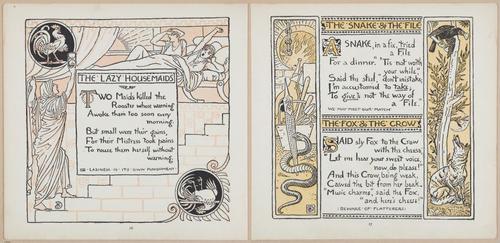 THE LAZY HOUSEMAIDS
TWO Maids killed the
Rooster whose warning
Awoke them too soon every
morning.
But small were their gains,
For their Mistress took pains
To rouse them herself without
warning.
LAZINESS IS ITS OWN PUNISHMENT
16
THE SNAKE & THE FILE
A SNAKE, in a fix, tried
a File
For a dinner. "'Tis not worth
your while,"
Said the steel, "don't mistake;
I'm accustomed to take,
To give's not the way of
a File."
WE MAY MEET OUR MATCH
THE FOX & THE CROW
SAID sly Fox to the Crow
with the cheese,
"Let me hear your sweet voice,
now, do please!"
And this Crow, being weak,
Cawed the bit from her beak.
"Music charms," said the Fox,
"and here's cheese!"
BEWARE OF FLATTERERS
17